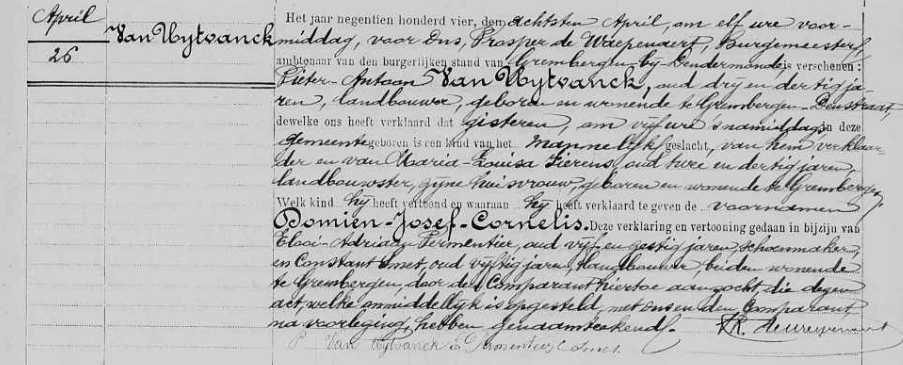 April
26
Van Uytvanck
Het jaar negentien honderd vier, den achtsten April, om elf ure voor-
middag, voor Ons, Prosper de Waepenaert, Burgemeester,
ambtenaar van den burgerlijken stand van Grembergen-by-Dendermonde, is verschenen:
Pieter-Antoon Van Uytvanck, oud drij en dertig ja-
ren, landbouwer, geboren en wonende te Grembergen-
dewelke ons heeft verklaard dat gisteren, om vijf ure 's namiddags in deze
gemeente geboren is een kind van het Mannelijk geslacht, van hem verklaar-
der en van Maria-Louisa Fierens, oud twee en dertig jaren,
landbouwster, zijne huisvrouw, geboren en wonende te Grembergen,
Welk kind hij heeft vertoond en waaraan hij heeft verklaard te geven de voornamen
Domien-Josef-Cornelis. Deze verklaring en vertooning gedaan in bijzijn van
Elooi-Adriaan Permentier, oud vijf en zestig jaren, schoenmaker,
en Constant Smet, oud vijftig jaren, landbouwer, beiden wonende
te Grembergen, door den Comparant hiertoe aanzocht, die dezen
act, welke onmiddellyk is opgesteld, met ons en den Comparant
na voorlezing, hebben genaamteekend.
Van Uytvanck Smet